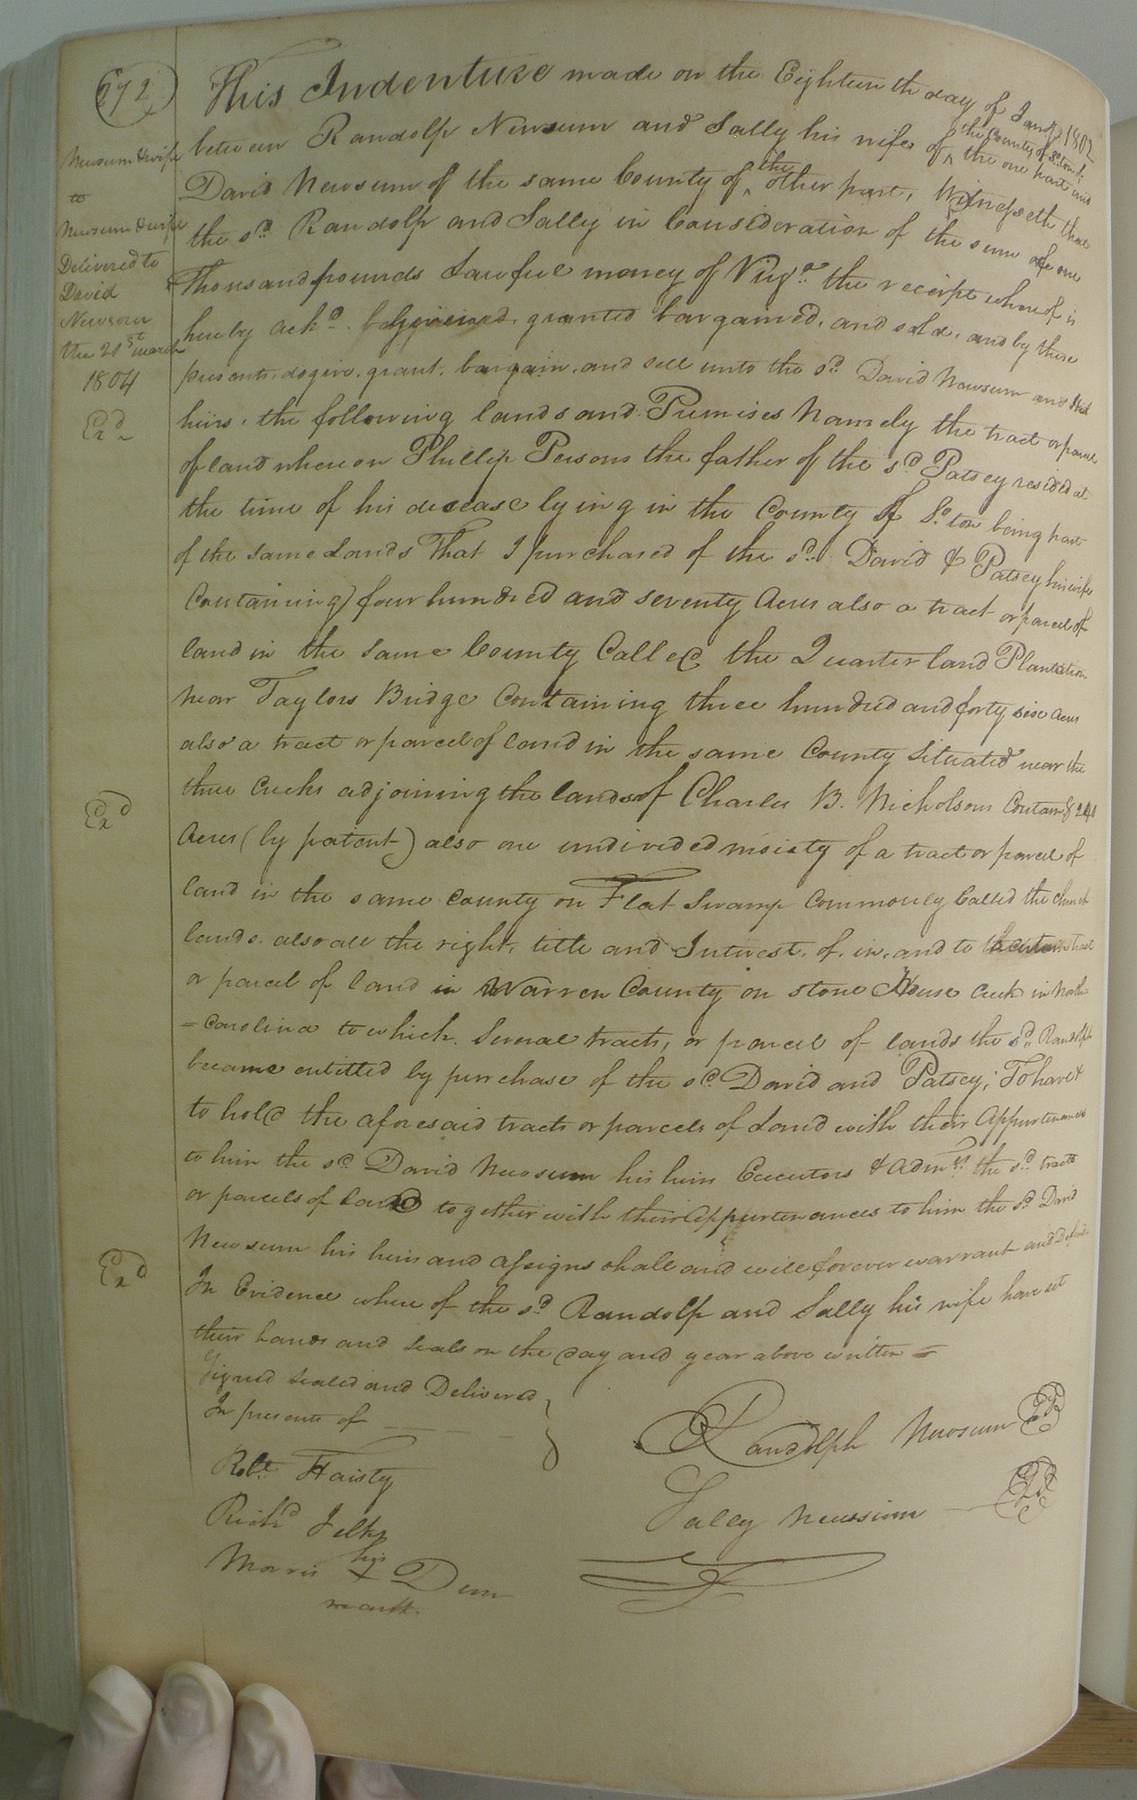 672
This Indenture made on the Eighteenth day of Jany 1802
between Randolph Newsum and Sally his wife of the County of So.ton of the one part and
David Newsum of the same County of the other part, Witnesseth that
the sd. Randolph and Sally in Consideration of the sum of one
Thousand pounds Lawful money of Virga. the receipt whereof is
hereby ackd. granted bargained, and sold, and by these
presents, do give, grant, bargain, and sell unto the sd. David Newsum and his
heirs, the following lands and Premises Namely the tract or parcel
of land whereon Phillip Persons the father of the sd. Patsey resided at
the time of his decease lying in the County of So.ton being part
of the same Lands That I purchased of the sd. David & Patsey his wife
Containing) four hundred and seventy Acres also a tract or parcel of
land in the same County Called the Quarter land Plantation
near Taylors Bridge Containing three hundred and forty six acres
also a tract or parcel of land in the same County Situated near the
three Creeks adjoining the lands of Charles B. Nicholson Containg 240
Acres (by patent) also one undivided moiety of a tract or parcel of
land in the same County on Flat Swamp Commonly Called the Church
lands. also all the right, title and Interest, of, in, and to tract
or parcel of land in Warren County on stone House Creek in North
=Carolina to which Several tracts, or parcel of lands the sd. Randolph
became entitled by purchase of the sd. David and Patsey; To have &
to hold the aforesaid tracts or parcels of Land with their Appurtenances
to him the sd. David Newsum his heirs Executors & Admrs. the sd. tracts
or parcels of land together with their Appurtenances to him the sd. David
Newsum his heirs and assigns shall and will forever warrant and Defend
In Evidence whereof the sd. Randolph and Sally his wife have set
their hands and seals on the day and year above written =
Signed Sealed and Delivered
In presents of
Robt. Haisty
Richd. Jelks
Morris his X Dun
mark
Randolph Newsum
Sally Newsum
Newsum & wife
to
Newsum & wife
Delivered to
David
Newsom
the 21st march
1804
Exd
Exd
Exd